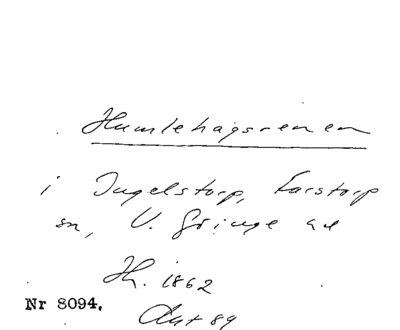 Humlehagsrenen
i Ingelstorp, Farstorp
sn, V. Göinge hd
Hh. 1862
Nr 8094.
Akt 89